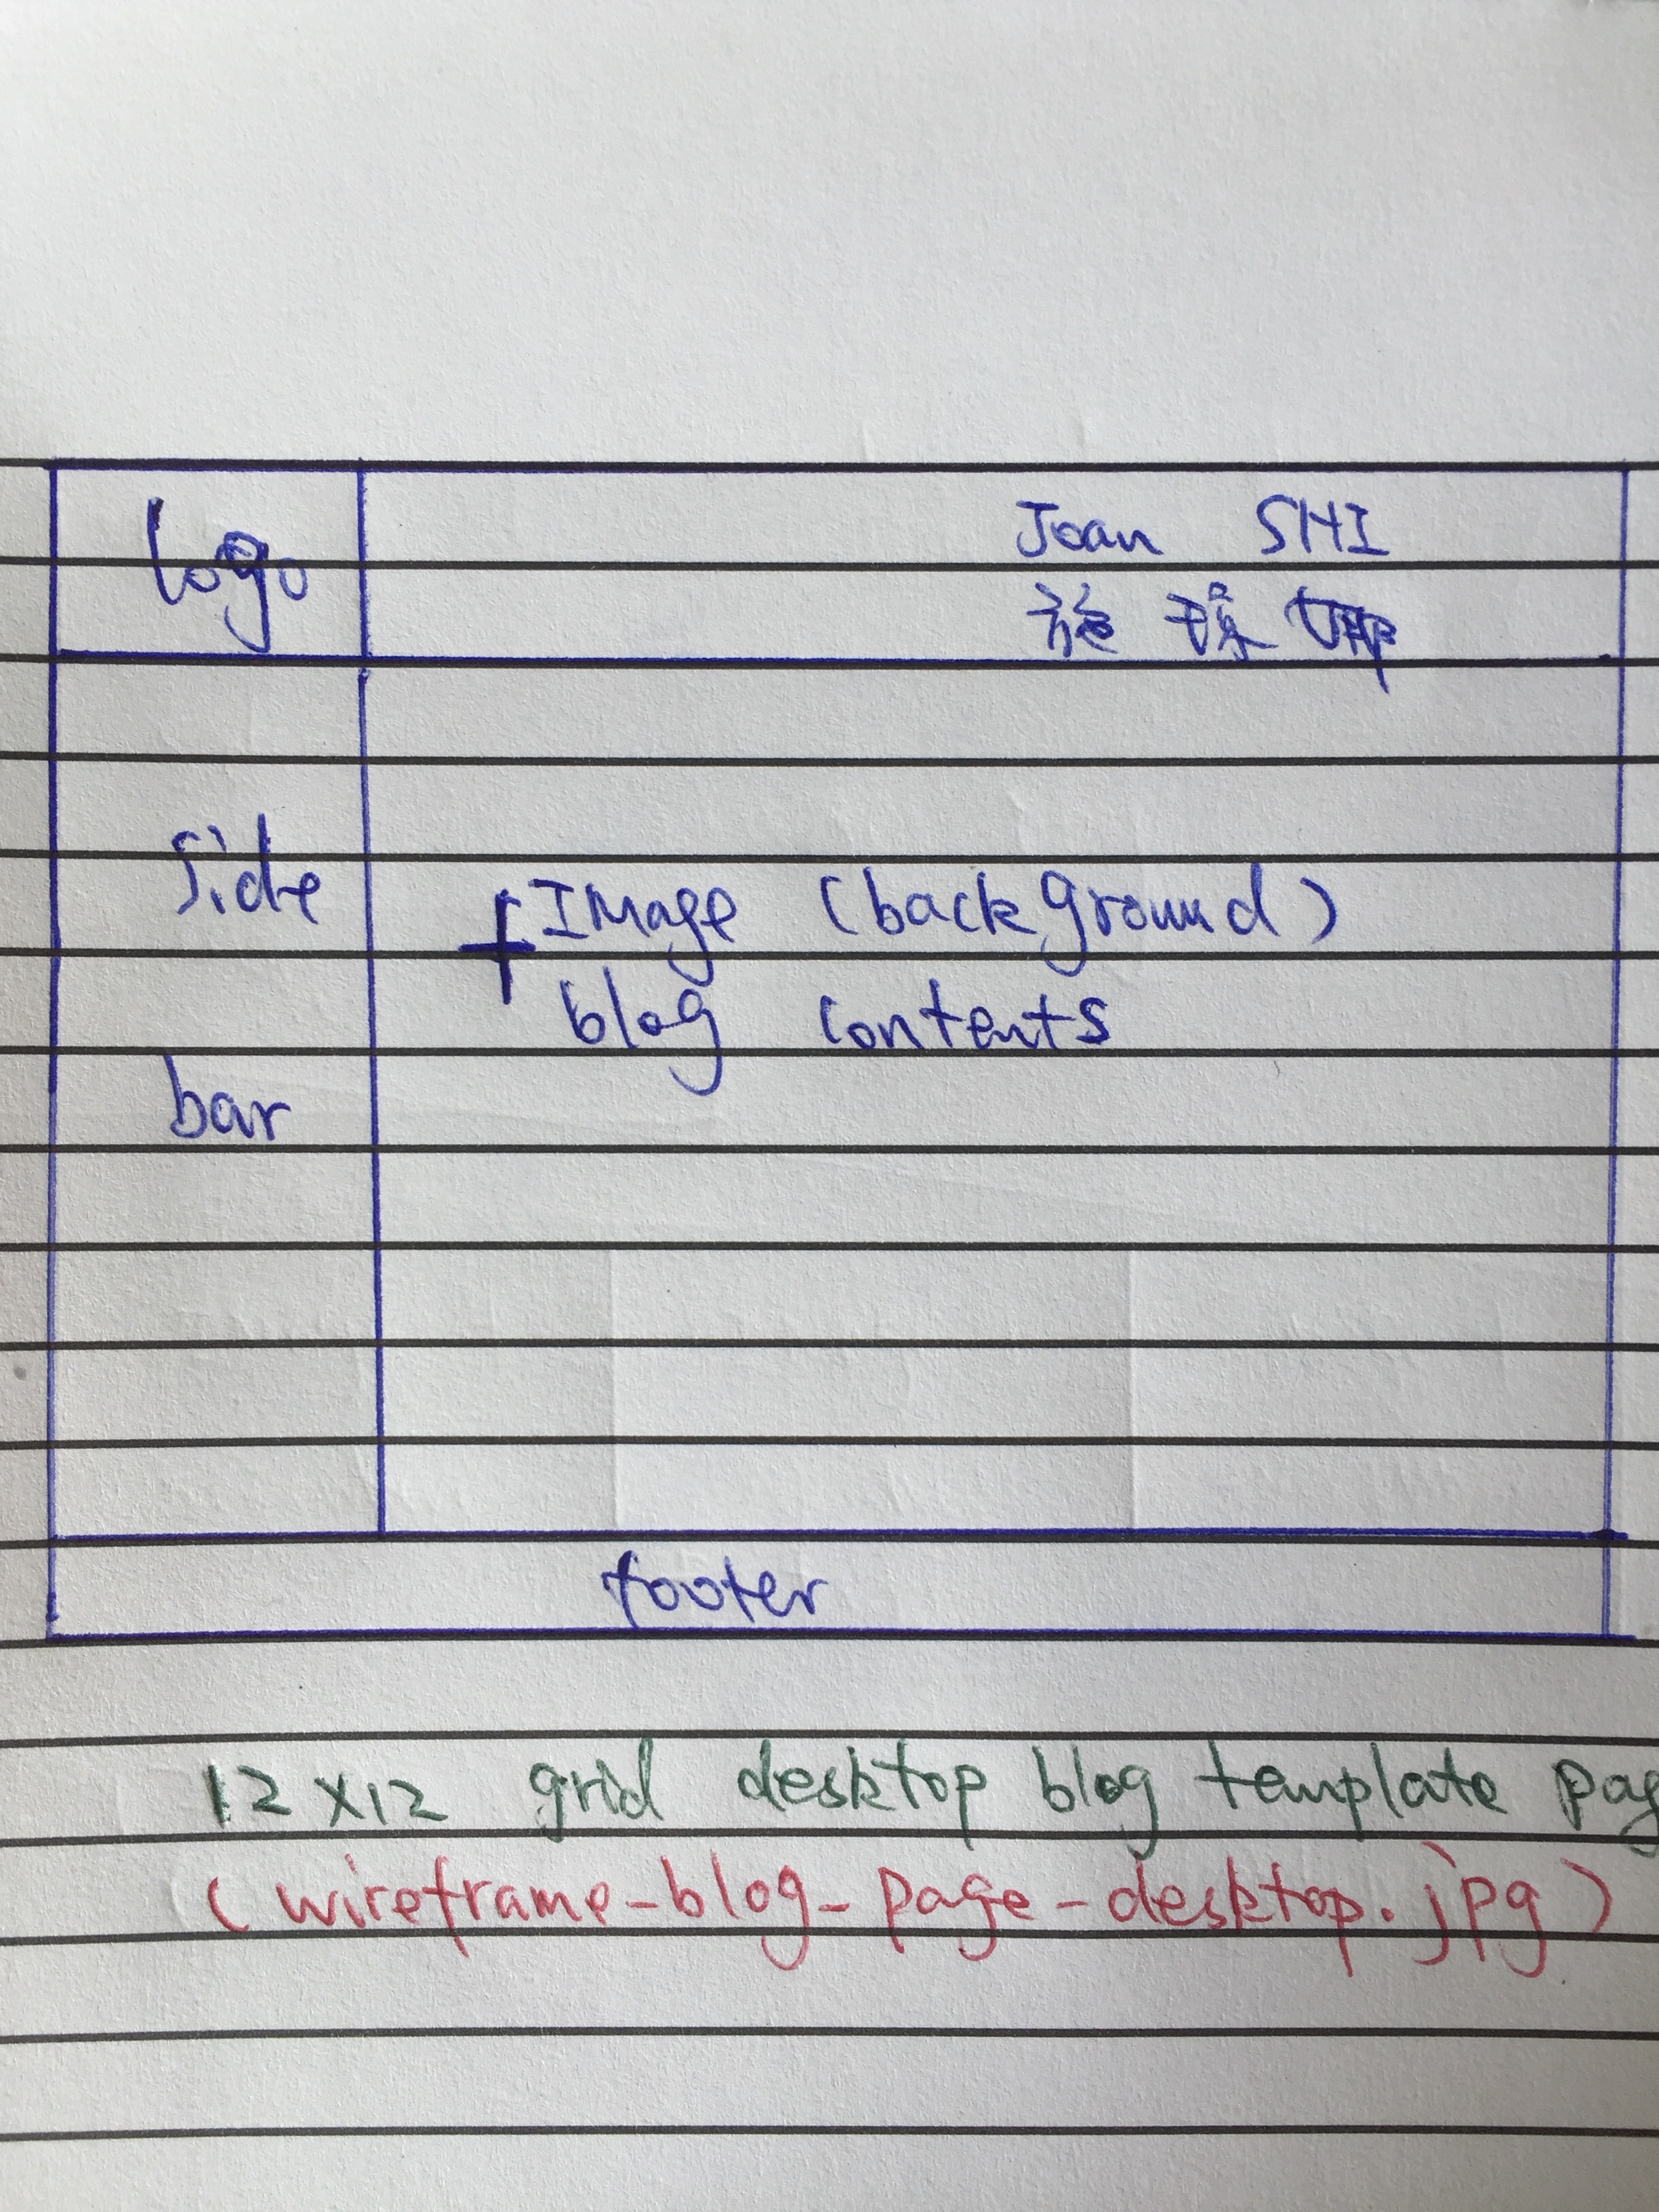 logo
Joan SHI
施
side
Image (background)
+
blog contents
bar
footer
12x12 grid desktop blog template pag
(wireframe-blog-page-desktop.jpg)